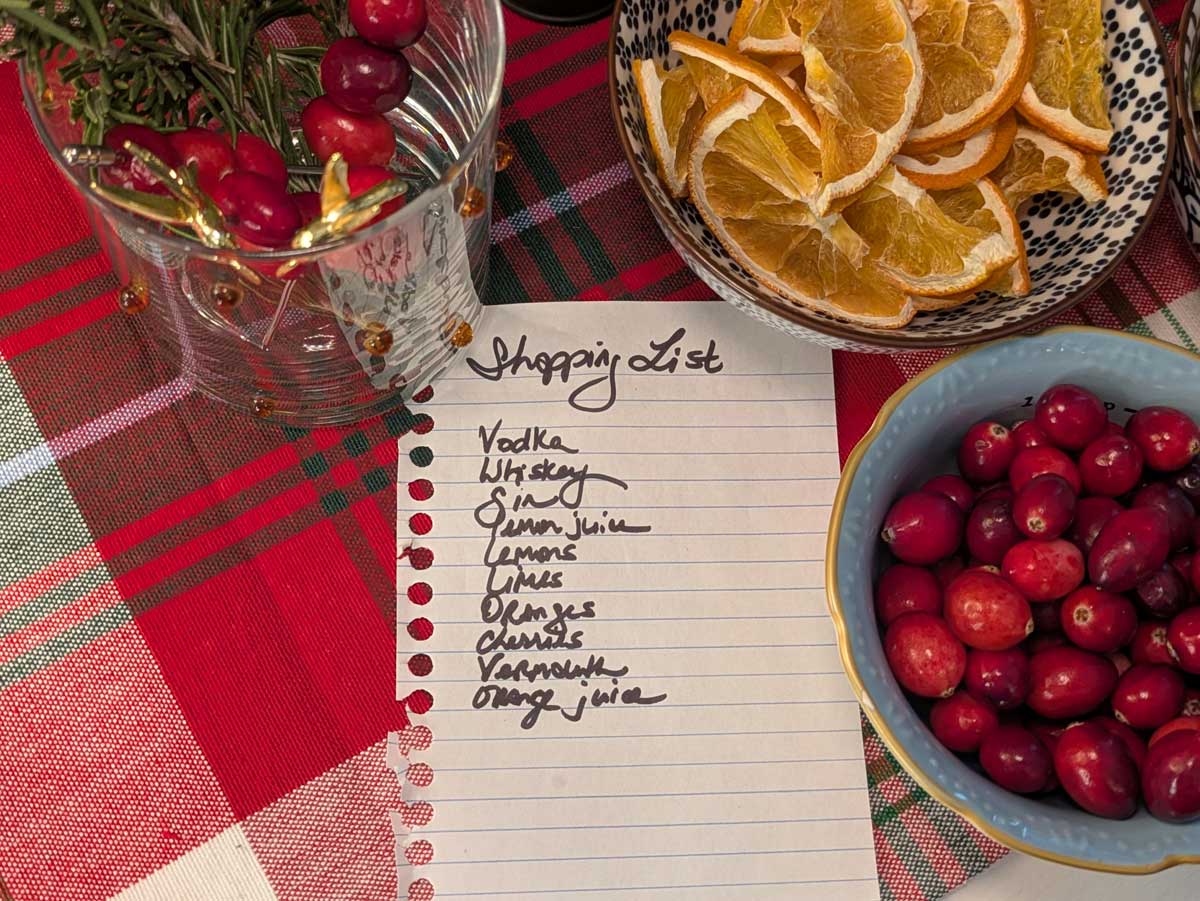 Shopping List
Vodka
Whiskey
Gin
Lemon juice
Lemons
Limes
Oranges
Cherries
Vermouth
Orange juice